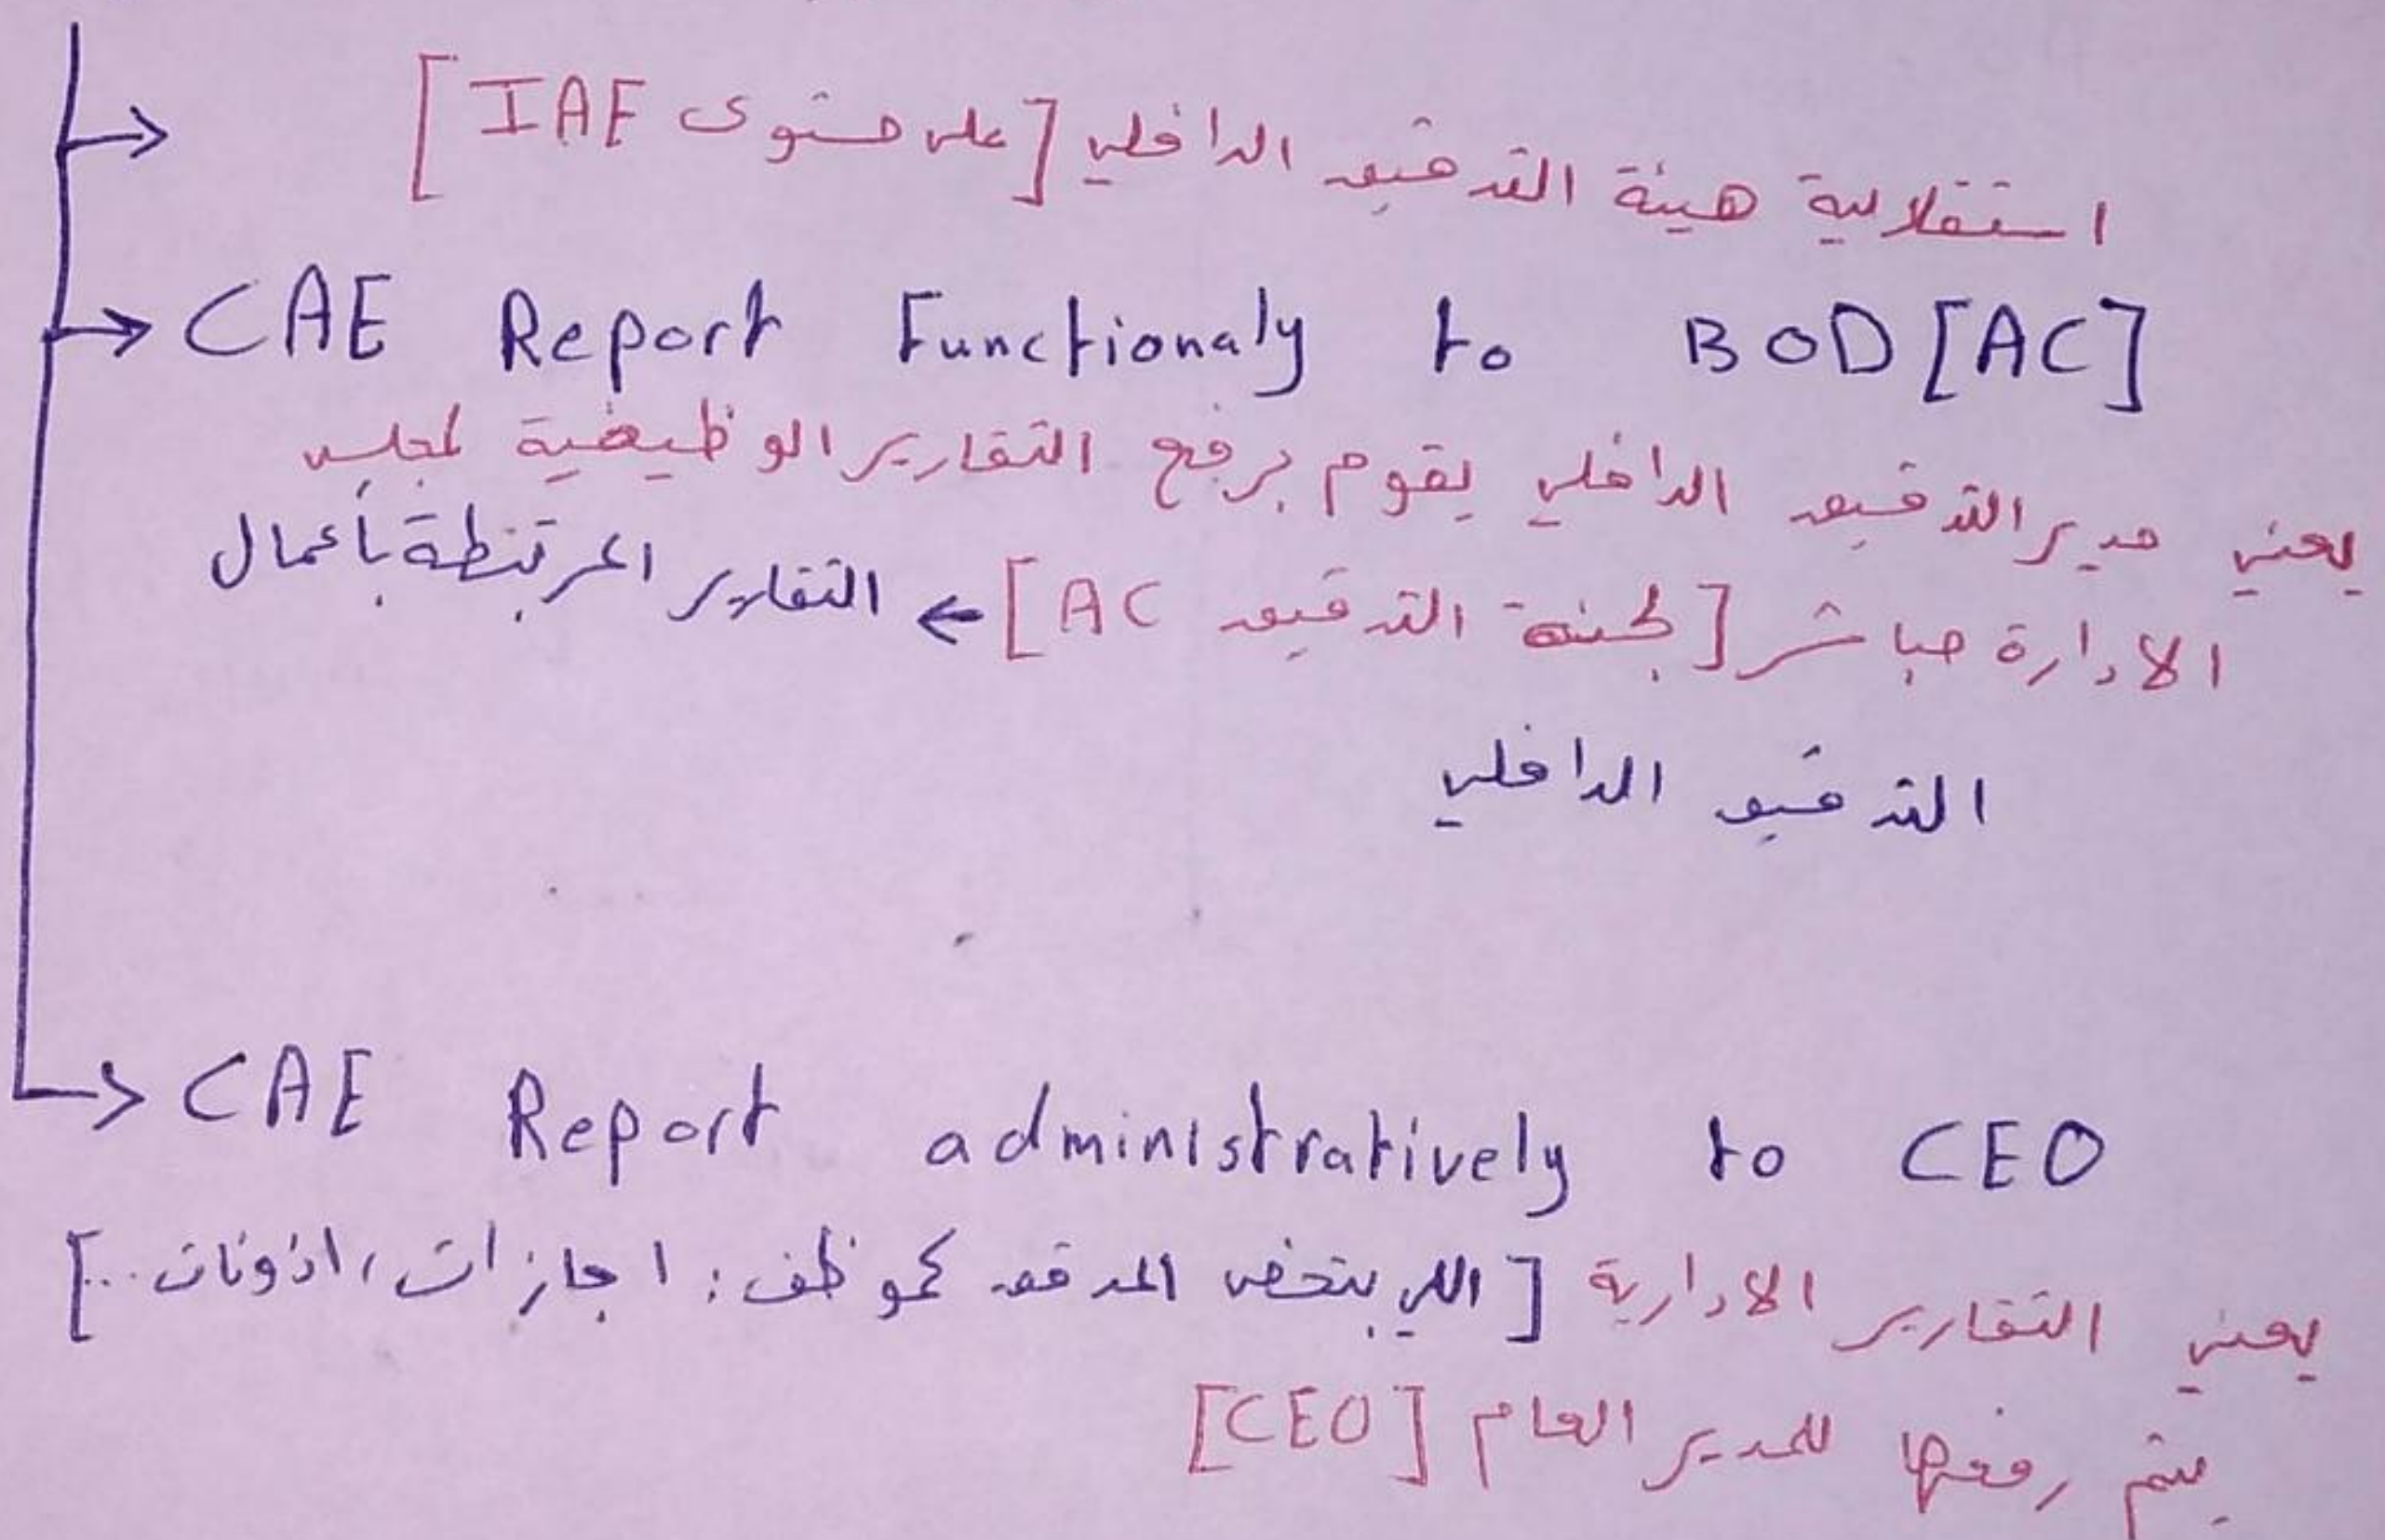 استقلالية هيئة التدقيق الداخلي [على مستوى IAF]
CAE Report Functionaly to BOD [AC]
يعني مدير التدقيق الداخلي يقوم برفع التقارير الوظيفية لمجلس
الادارة مباشر [لجنة التدقيق AC] ← التقارير المرتبطة بأعمال
التدقيق الداخلي
CAE Report administratively to CEO
يعني التقارير الادارية [اللي بتخص المدقق كموظف: اجازات، اذونات ...]
يتم رفعها للمدير العام [CEO]